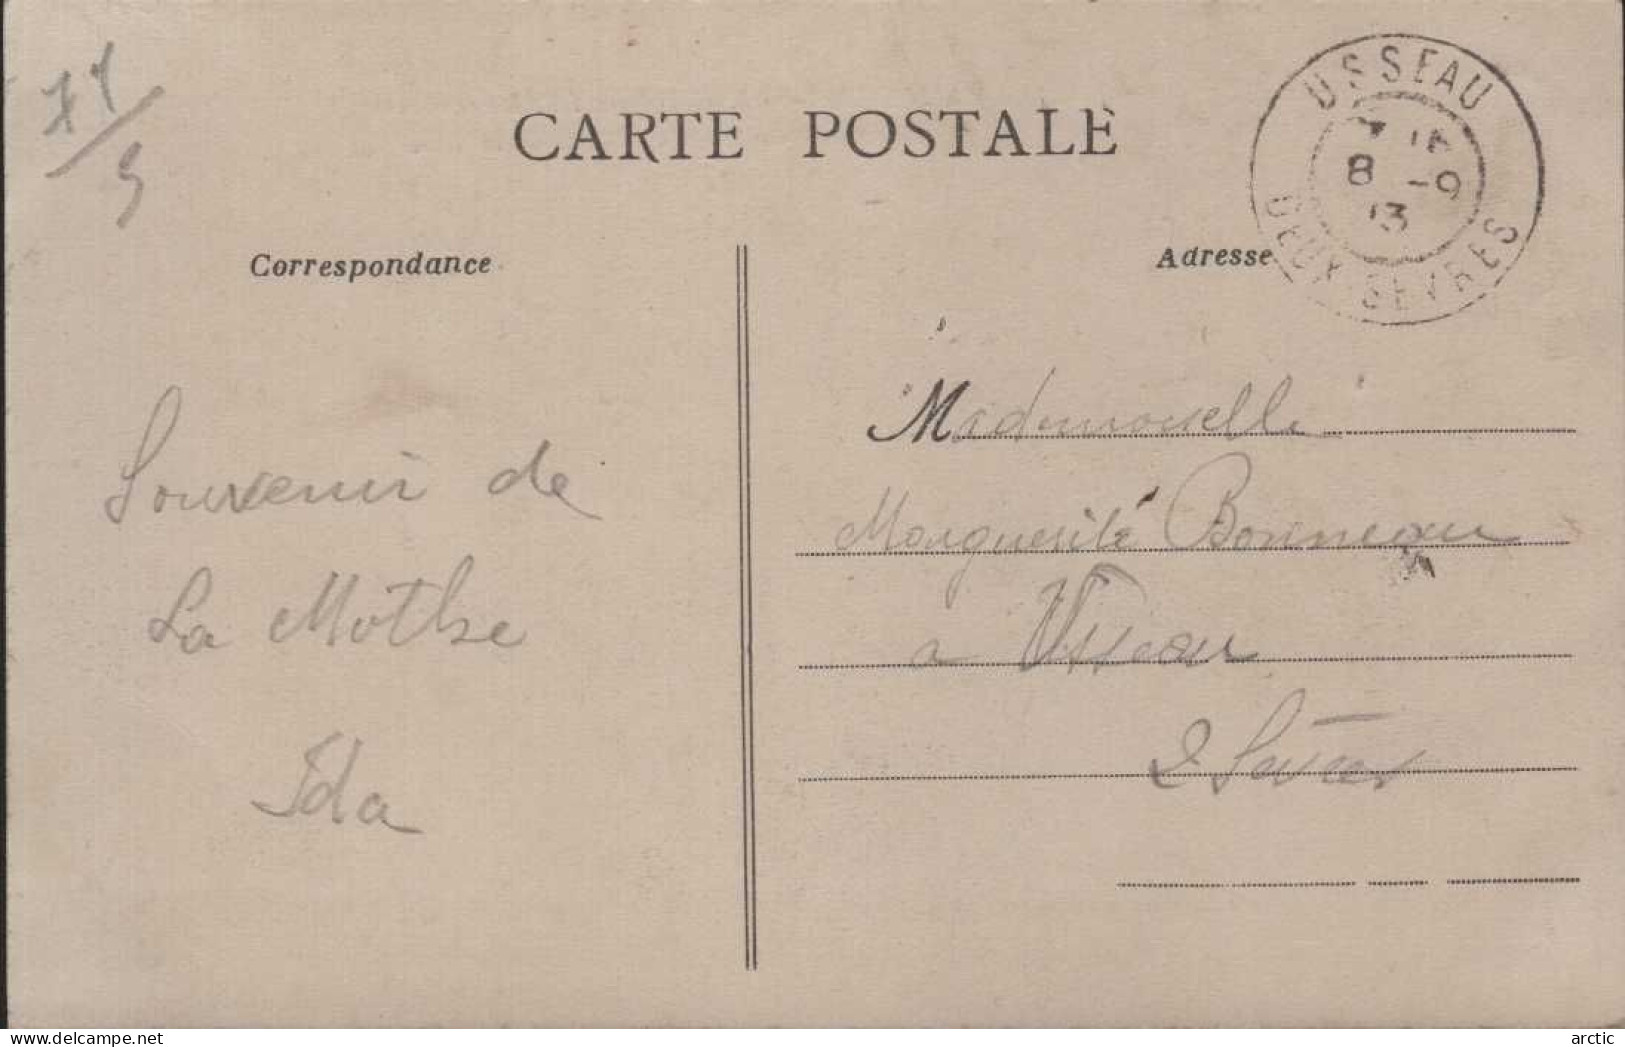 71/5
CARTE POSTALE
USSEAU
8 -9
13
DEUX-SEVRES
Correspondance
Adresse
Souvenir de
La Mothe
Ida
Mademoiselle
Marguerite Bonneau
a Usseau
2 Sèvres
delcampe.net
arctic